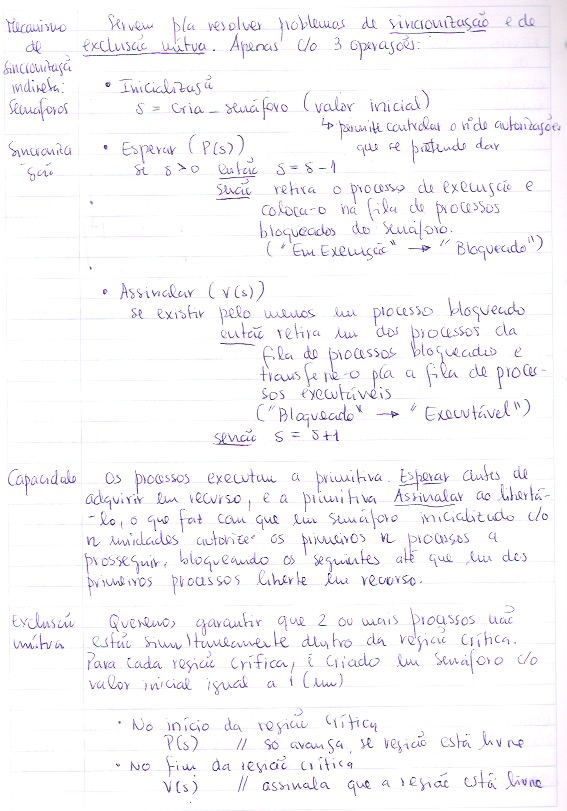 Mecanismo
de
Sincronizaçã
indireta:
Semáforos
Servem p/a resolver problemas de sincronização e de
exclusão mútua. Apenas c/o 3 operações:
• Inicializaçã
s = cria_semáforo (valor inicial)
↳ permite controlar o nº de autorizações
que se pretende dar
Sincroniza
ção
• Esperar (P(s))
se s>0 então s = s-1
senão retira o processo de execução e
coloca-o na fila de processos
bloqueados do semáforo.
("Em Execução" → "Bloqueado")
• Assinalar (V(s))
se existir pelo menos um processo bloqueado
então retira um dos processos da
fila de processos bloqueados e
transfere-o p/a a fila de proces-
sos executáveis
("Bloqueado" → "Executável")
senão s = s+1
Capacidade
Os processos executam a primitiva Esperar antes de
adquirir um recurso, e a primitiva Assinalar ao libertá-
-lo, o que faz com que um semáforo inicializado c/o
n unidades autorize os primeiros n processos a
prosseguir, bloqueando os seguintes até que um dos
primeiros processos liberte um recurso.
Exclusão
mútua
Queremos garantir que 2 ou mais processos não
estão simultaneamente dentro da região crítica.
Para cada região crítica, é criado um semáforo c/o
valor inicial igual a 1 (um)
• No início da região crítica
P(s) // so avança, se região está livre
• No fim da região crítica
V(s) // assinala que a região está livre